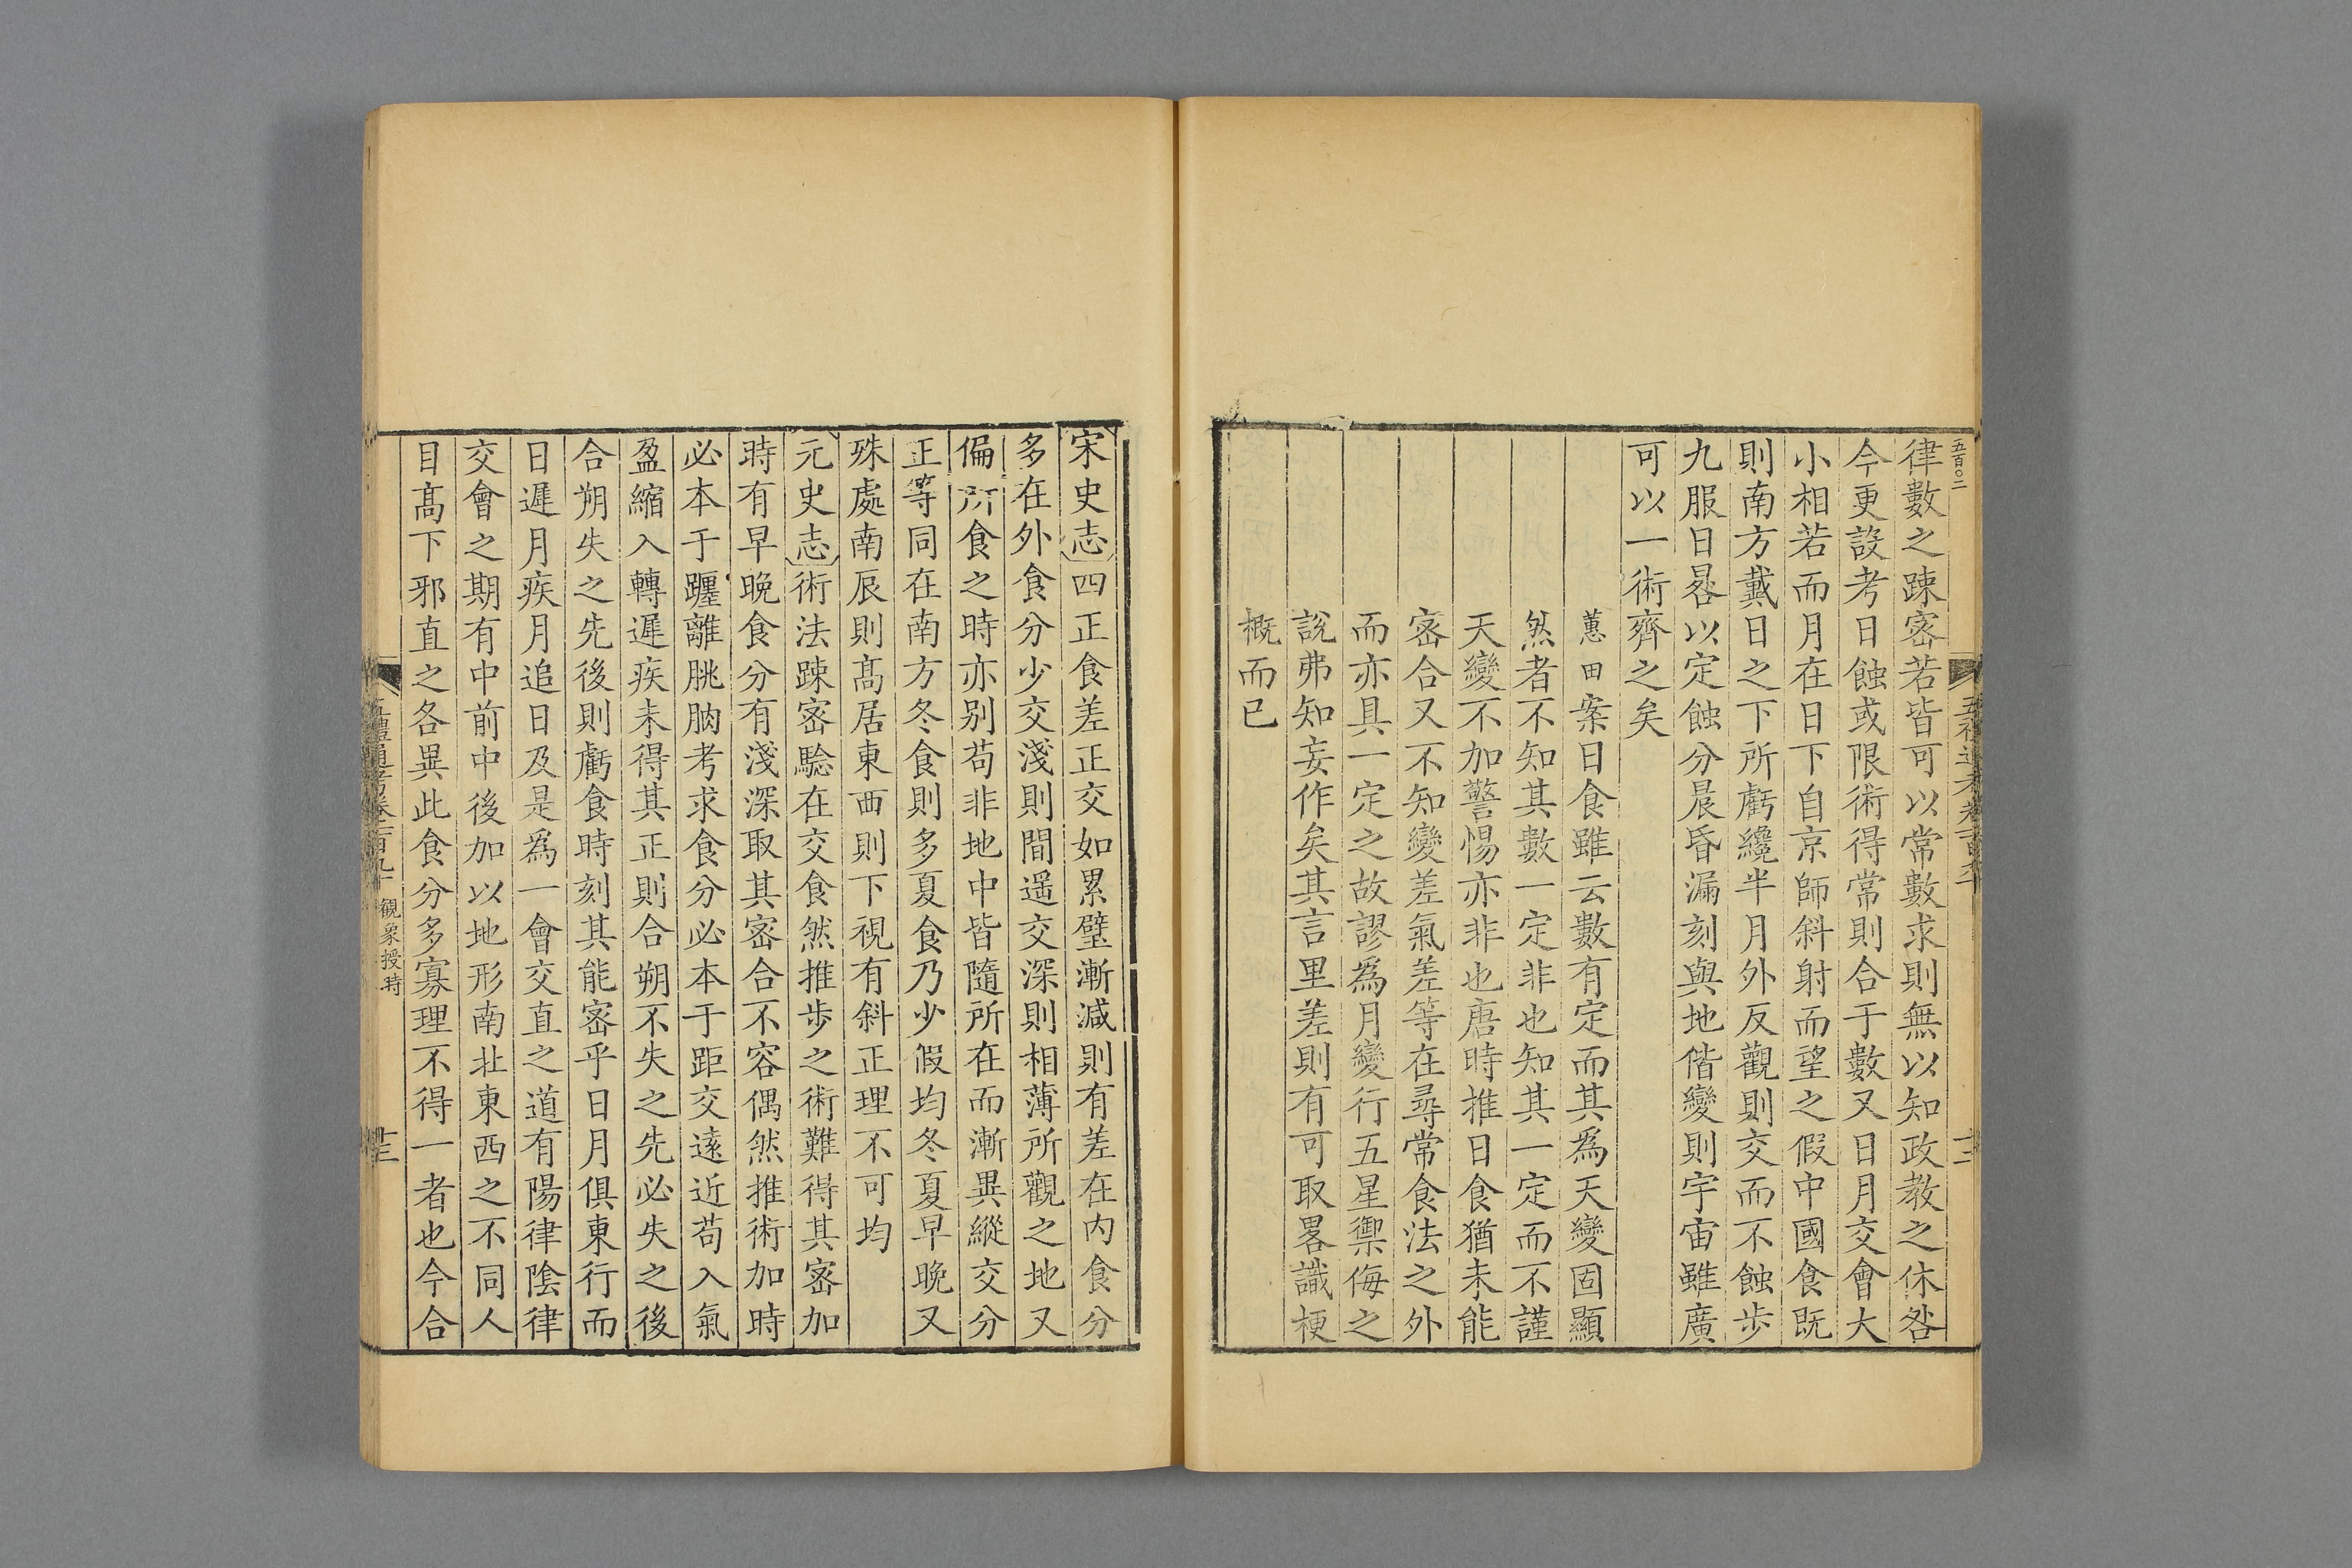 五百〇二
律數之踈宻若皆可以常數求則無以知政教之休咎
今更設考日蝕或限術得常則合于數又日月交會大
小相若而月在日下自京師斜射而望之假中國食既
則南方戴日之下所虧纔半月外反觀則交而不蝕步
九服日晷以定蝕分晨昏漏刻與地偕變則宇宙雖廣
可以一術齊之矣
蕙田案日食雖云數有定而其爲天變固顯
然者不知其數一定非也知其一定而不謹
天變不加警惕亦非也唐時推日食猶未能
宻合又不知變差氣差等在尋常食法之外
而亦具一定之故謬爲月變行五星禦侮之
說弗知妄作矣其言里差則有可取畧識梗
概而已
宋史志四正食差正交如累璧漸減則有差在內食分
多在外食分少交淺則間遥交深則相薄所觀之地又
偏所食之時亦别苟非地中皆隨所在而漸異縱交分
正等同在南方冬食則多夏食乃少假均冬夏早晚又
殊處南辰則髙居東西則下視有斜正理不可均
元史志術法踈宻騐在交食然推步之術難得其宻加
時有早晚食分有淺深取其宻合不容偶然推術加時
必本于躔離朓朒考求食分必本于距交遠近苟入氣
盈縮入轉遲疾未得其正則合朔不失之先必失之後
合朔失之先後則虧食時刻其能宻乎日月俱東行而
日遲月疾月追日及是爲一會交直之道有陽律陰律
交會之期有中前中後加以地形南北東西之不同人
目髙下邪直之各異此食分多寡理不得一者也今合
五禮通考卷一百九十 觀象授時
十三